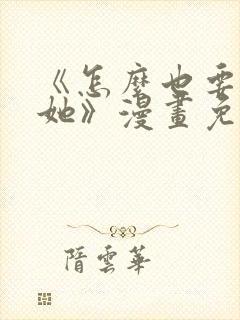 《怎麽也要
她》漫畫免
隋雲華